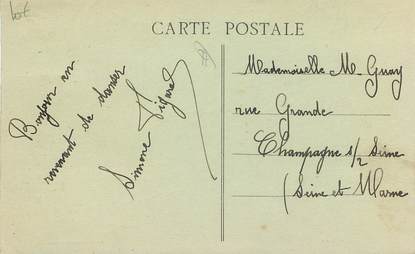 lot
CARTE POSTALE
Bonjour en
revenant de danser
Simone
Mademoiselle M. Guay
rue Grande
Champagne s/2 Seine
(Seine et Marne